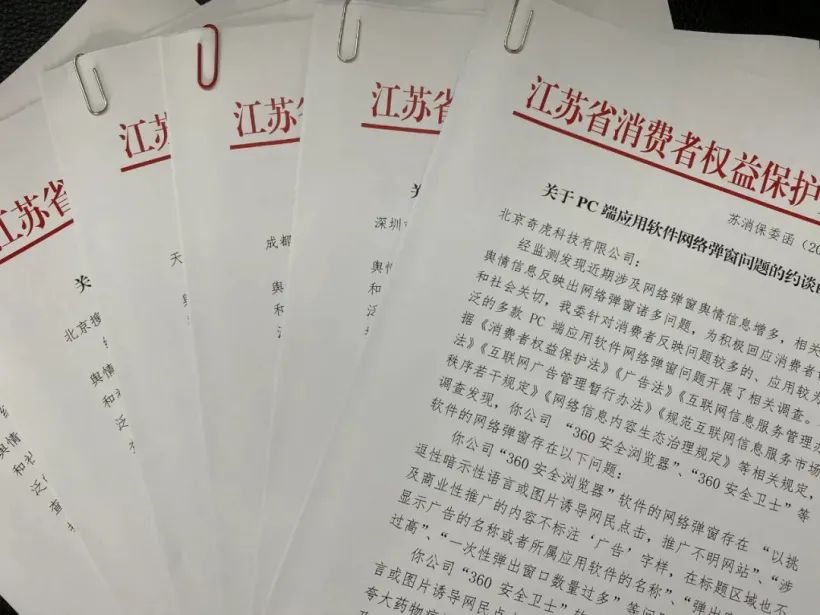 江苏省
关
北京搜
舆情
和社
泛
查
江苏
天
舆
和
江苏
成都
舆
和
泛
江苏省
深圳
舆情
和
泛
据
江苏省消费者权益保护
苏消保委函（20
关于 PC 端应用软件网络弹窗问题的约谈
北京奇虎科技有限公司：
经监测发现近期涉及网络弹窗舆情信息增多，相关
舆情信息反映出网络弹窗诸多问题，为积极回应消费者
和社会关切，我委针对消费者反映问题较多的、应用较为
泛的多款 PC 端应用软件网络弹窗问题开展了相关调查。
据《消费者权益保护法》《广告法》《互联网信息服务管理办
法》《互联网广告管理暂行办法》《规范互联网信息服务市场
秩序若干规定》《网络信息内容生态治理规定》等相关规定，
调查发现，你公司 “360 安全浏览器”、“360 安全卫士” 等
软件的网络弹窗存在以下问题：
你公司“360 安全浏览器”软件的网络弹窗存在 “以挑
逗性暗示性语言或图片诱导网民点击，推广不明网站”、“涉
及商业性推广的内容不标注‘广告’字样，在标题区域也不
显示广告的名称或者所属应用软件的名称”、“弹出
过高”、“一次性弹出窗口数量过多” 等问
你公司 “360 安全卫士” 软
言或图片诱导网民点
夸大药物